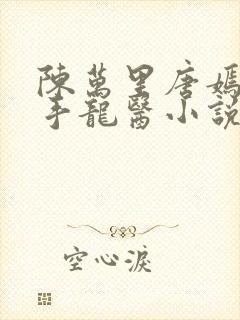 陳萬里唐嫣
手龍醫小說
空心淚